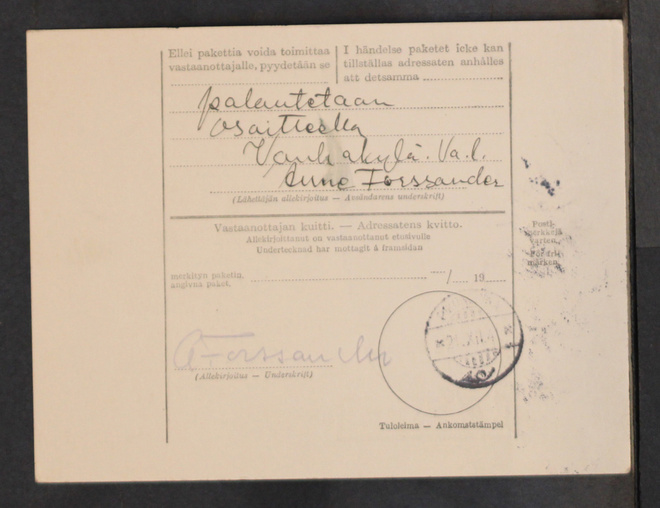 Ellei pakettia voida toimittaa
vastaanottajalle, pyydetään se
I händelse paketet icke kan
tillställas adressaten anhålles
att detsamma
palautetaan
osoitteella
Vanhakylä. Va.l.
Forssander
(Lähettäjän allekirjoitus — Avsändarens underskrift)
Vastaanottajan kuitti. — Adressatens kvitto.
Allekirjoittanut on vastaanottanut etusivulle
Undertecknad har mottagit å framsidan
merkityn paketin,
angivna paket.
/ 19
Forssander
(Allekirjoitus — Underskrift)
Tuloleima — Ankomststämpel
Posti-
merkkejä
varten.
För fri-
märken.